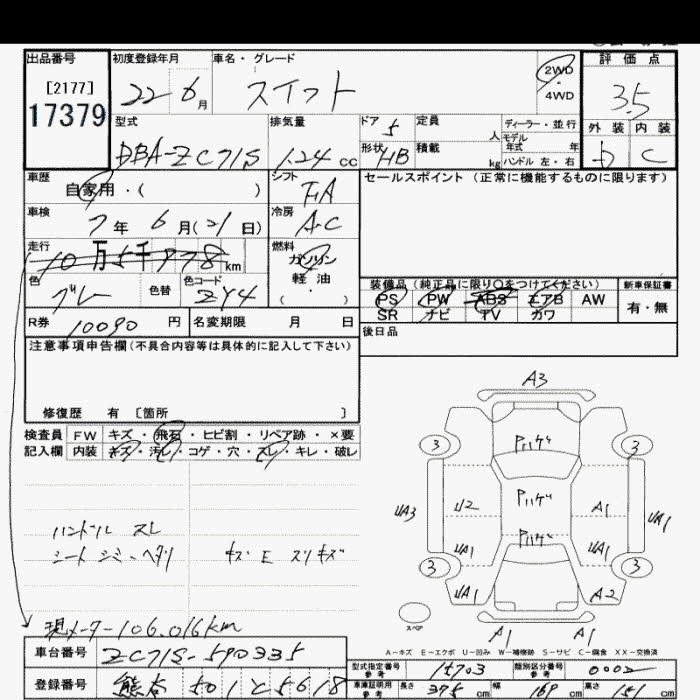 出品番号 初度登録年月 車名・グレード 2WD・4WD 評価点
[2177]
17379
22 6月 スイフト 3.5
型式 排気量 ドア 5 定員 人 ディーラー・並行 外装 内装
DBA-ZC71S 1.24 cc 形状 HB 積載 kg モデル年式 年 ハンドル 左・右 C
車歴 自家用・( ) シフト FA セールスポイント (正常に機能するものに限ります)
車検 7年 6月(21日) 冷房 A-C
走行 10万5千978km 燃料 ガソリン・軽油・( )
色 グレー 色替 色コード ZY4
装備品 (純正品に限り○をつけてください) 新車保証書
PS PW ABS エアB AW 有・無
SR ナビ TV カワ
R券 10090円 名変期限 月 日 後日品
注意事項申告欄(不具合内容等は具体的に記入して下さい)
修復歴 有 [箇所 ]
検査員 FW キズ・飛石・ヒビ割・リペア跡・×要
記入欄 内装 キズ・汚レ・コゲ・穴・スレ・キレ・破レ
ハンドル スレ
シート シミ・ヘタリ キズ E スリキズ
A3
3 Pハゲ 3
Pハゲ
UA3 U2 A1 UA1
Pハゲ
UA1 UA1
3 3
UA1 A2
スペア A1 A1
現メーター106,016km
A-キズ E-エクボ U-凹み W-補修跡 S-サビ C-腐食 XX-交換済
車台番号 ZC71S-590335
型式指定番号 参考 15703 類別区分番号 参考 0002
登録番号 熊本 501 と 5618
車庫証明用 参考 長さ 375 cm 幅 169 cm 高さ 151 cm